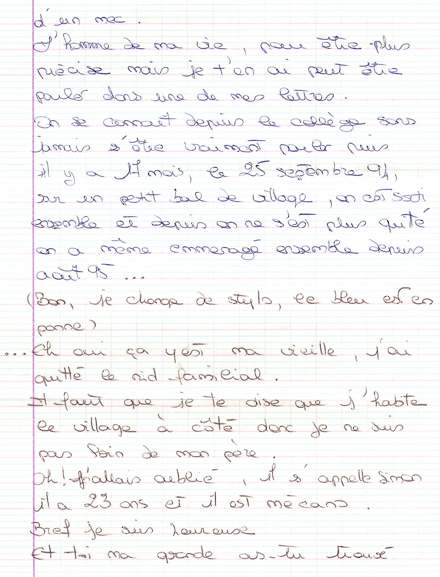 d'un mec.
L'homme de ma vie, pour être plus
précise mais je t'en ai peut être
parlé dans une de mes lettres.
On se connait depuis le collège sans
jamais s'être vraiment parler puis
il y a 17 mois, le 25 septembre 94,
sur un petit bal de village, on est sorti
ensemble et depuis on ne s'est plus quité
on a même emmenagé ensemble depuis
août 95...
(Bon, je change de stylo, le bleu est en
panne)
...Eh oui ça y est ma vieille, j'ai
quitté le nid familial.
Il faut que je te dise que j'habte
le village à côté donc je ne suis
pas loin de mon père.
Oh! J'allais oublié, il s'appelle Simon
il a 23 ans et il est mécano.
Bref je suis heureuse
Et toi ma grande as-tu trouvé